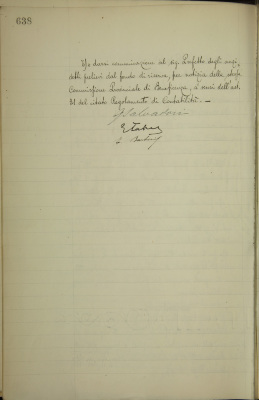 638
Da darsi comunicazione al sig. Prefetto degli anzi-
detti prelievi dal fondo di riserva, per notizia della stessa
Commissione Provinciale di Beneficenza, a sensi dell'art.
21 del citato Regolamento di Contabilità. —
Salvadori